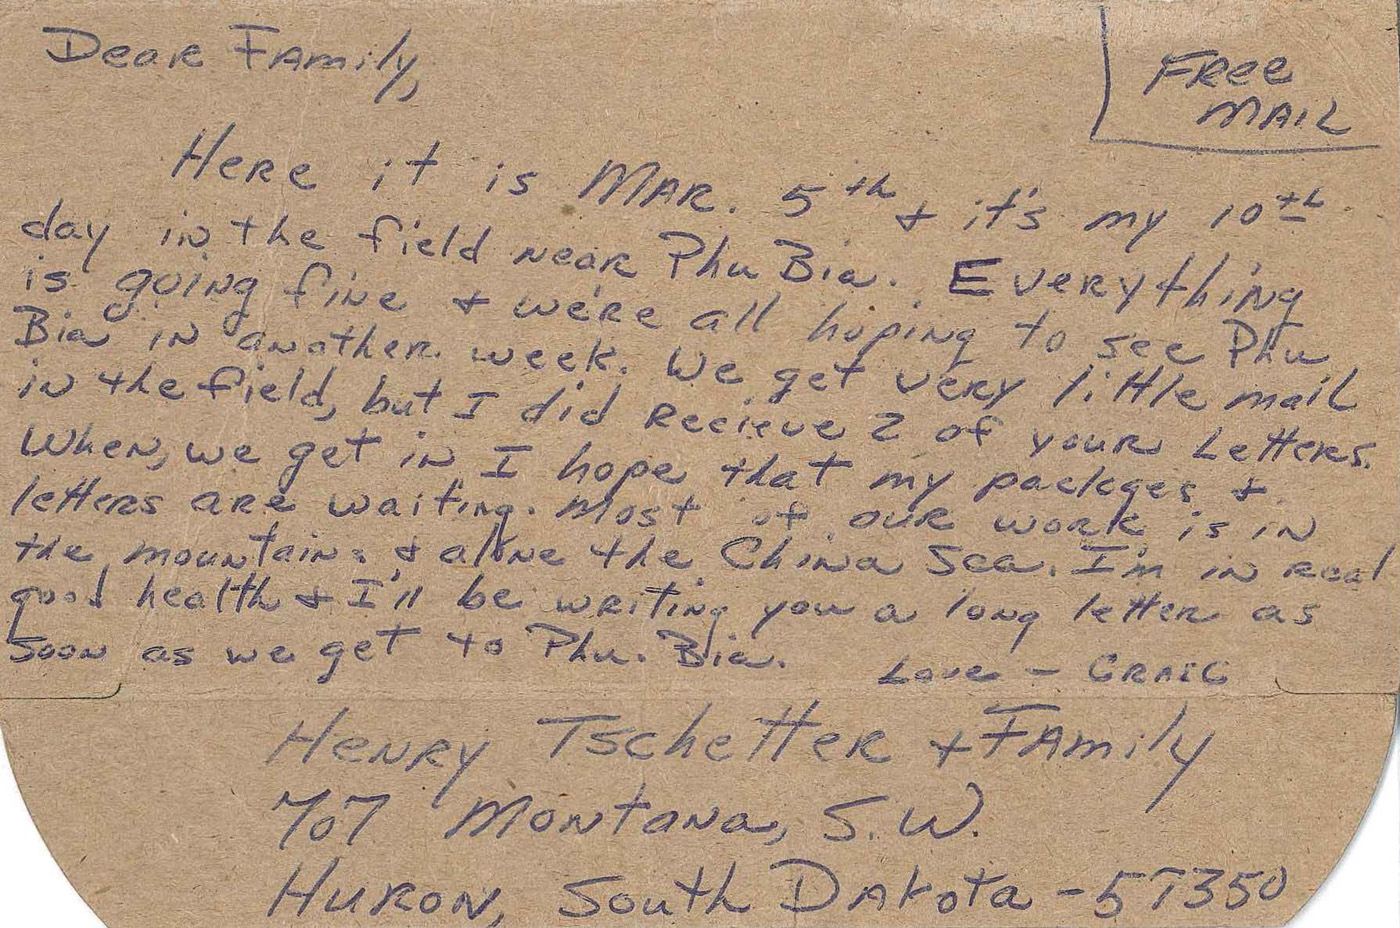 Dear Family,
Free
Mail
Here it is Mar. 5th & it's my 10th
day in the field near Phu Bia. Everything
is going fine & we're all hoping to see Phu
Bia in another week. We get very little mail
in the field, but I did recieve 2 of your letters.
When, we get in I hope that my packges &
letters are waiting. Most of our work is in
the mountains & alone the China Sea. I'm in real
good health & I'll be writing you a long letter as
soon as we get to Phu. Bia.
Love - Craig
Henry Tschetter & Family
707 Montana, S.W.
Huron, South Dakota - 57350